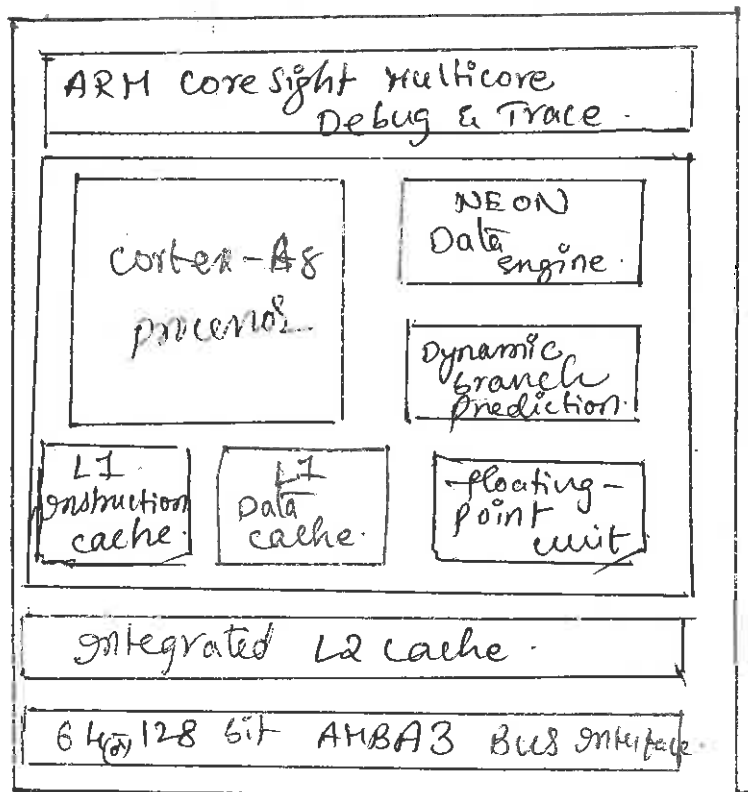 ARM Core Sight Multicore
Debug & Trace.
Cortex-A8
processor.
NEON
Data
engine.
Dynamic
branch
prediction.
L1
Instruction
cache.
L1
Data
cache.
floating-
point
unit
Integrated L2 cache.
64 (or) 128 bit AMBA3 Bus Interface.